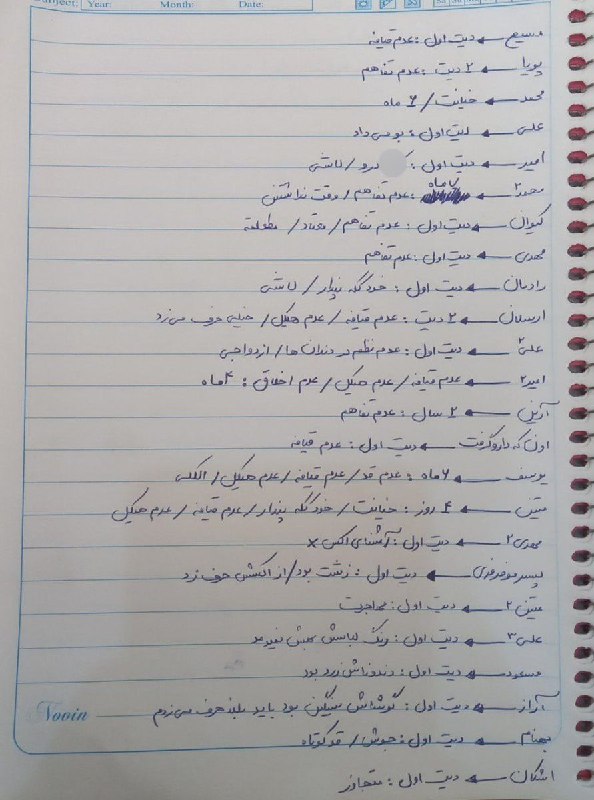 Subject: Year: Month: Date:
مسیح ← دیت اول : عدم قیافه
پوریا ← ۲ دیت : عدم تفاهم
محمد ← خیانت / ۶ ماه
علی ← دیت اول : بو می داد
امیر ← دیت اول : درو / لاشی
محمد۲ ← ۷ ماه : عدم تفاهم / وقت نداشتن
کیوان ← دیت اول : عدم تفاهم / معتاد / مطلقه
مهدی ← دیت اول : عدم تفاهم
رادمان ← دیت اول : خودگه پندار / لاشی
ارسلان ← ۲ دیت : عدم قیافه / عدم هیکل / خیلی حرف می زد
علی۲ ← دیت اول : عدم نظم در دندان ها / ازدواجی
امیر۲ ← عدم قیافه / عدم هیکل / عدم اخلاق : ۴ ماه
آرین ← ۲ سال : عدم تفاهم
اونی که دارو گرفت ← دیت اول : عدم قیافه
یوسف ← ۶ ماه : عدم قد / عدم قیافه / عدم هیکل / الکلی
متین ← ۴ روز : خیانت / خودگه پندار / عدم قیافه / عدم هیکل
مهدی۲ ← دیت اول : آشنای اکس x
پسر مو فرفری ← دیت اول : زشت بود / از اکسش حرف زد
متین ۲ ← دیت اول : مهاجرت
علی۳ ← دیت اول : رنگ لباسش بهش نمیومد
مسعود ← دیت اول : دندوناش زرد بود
آراز ← دیت اول : گوشاش سنگین بود باید بلند حرف می زدم
بهنام ← دیت اول : جوش / قد کوتاه
اشکان ← دیت اول : متجاوز
Novin